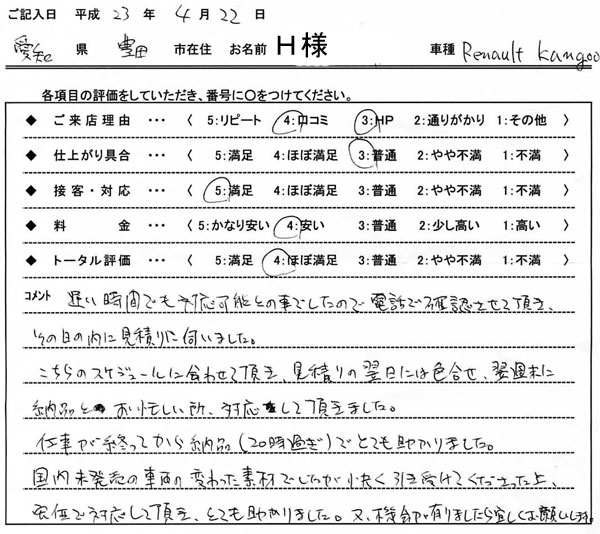 ご記入日 平成 23 年 4 月 22 日
愛知 県 豊田 市在住 お名前 H様 車種 Renault Kangoo
各項目の評価をしていただき、番号に○をつけてください。
◆ ご来店理由 ・・・ 〈 5:リピート 4:口コミ 3:HP 2:通りがかり 1:その他 〉
◆ 仕上がり具合 ・・・ 〈 5:満足 4:ほぼ満足 3:普通 2:やや不満 1:不満 〉
◆ 接客・対応 ・・・ 〈 5:満足 4:ほぼ満足 3:普通 2:やや不満 1:不満 〉
◆ 料金 ・・・ 〈 5:かなり安い 4:安い 3:普通 2:少し高い 1:高い 〉
◆ トータル評価 ・・・ 〈 5:満足 4:ほぼ満足 3:普通 2:やや不満 1:不満 〉
コメント 遅い時間でも対応可能との事でしたので電話で確認させて頂き、
その日の内に見積りに伺いました。
こちらのスケジュールに合わせて頂き、見積りの翌日には色合せ、翌週末に
納品と お忙しい所、対応して頂きました。
仕事が終ってから納品(20時過ぎ)でとても助かりました。
国内未発売の車両の変わった素材でしたが快く引き受けてくださった上、
安価で対応して頂き、とても助かりました。又、機会が有りましたら宜しくお願いします。